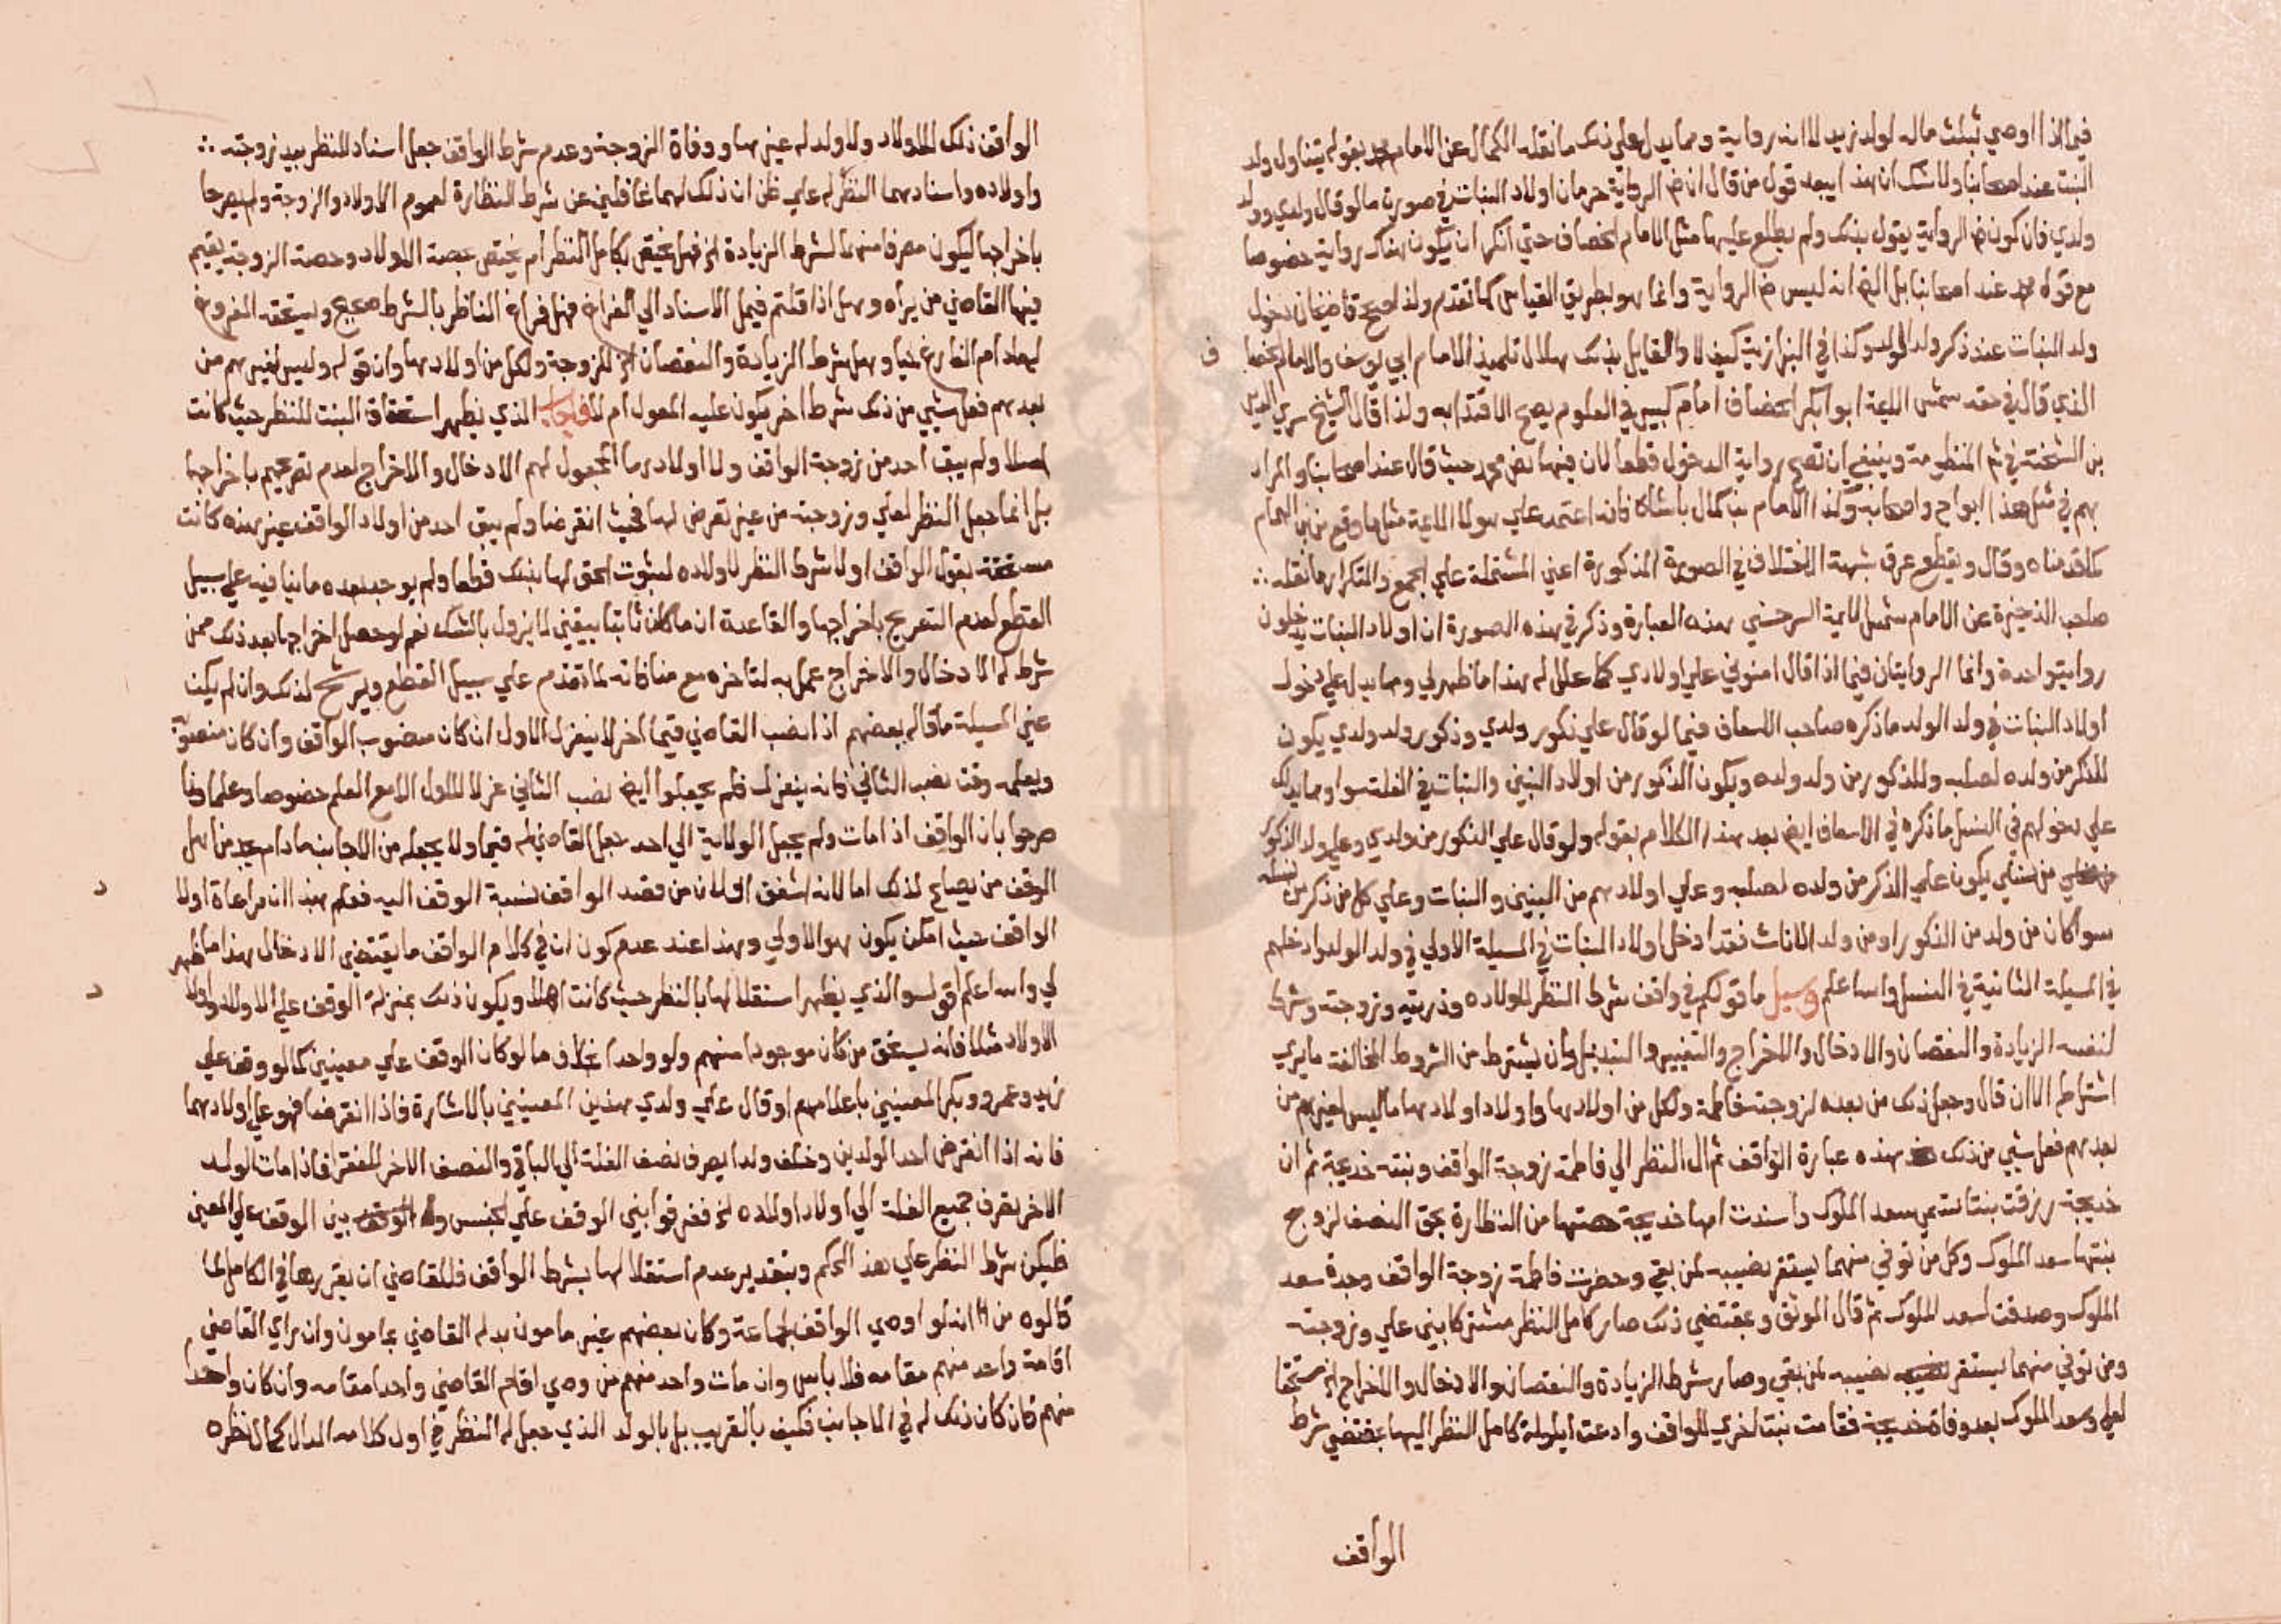 فيما اذا اوصي بثلث ماله لولد زيد لا انه رواية ومما يدل علي ذلك ما نقله الكمال عن الامام محمد بقوله يتناول ولد
البنت عند اصحابنا ولا شك ان هذا يبعد قول من قال ان ظ الرواية حرمان اولاد البنات في صورة ما لو قال ولدي وولد
ولدي فان كون ظ الرواية يقول بذلك ولم يطلع عليها مثل الامام الخصاف حتي انكر ان يكون هناك رواية خصوصا
مع قوله محمد عند اصحابنا بل الظ انه ليس ظ الرواية وانما هو بطريق القياس كما تقدم ولذا صحح قاضيخان دخول
ولد البنات عند ذكر ولد الولد وكذا في البزازية كيف لا والقايل بذلك هلال تلميذ الامام ابي يوسف والامام الخصا
ف
الذي قال في حقه شمس الايمة ابو ابكر الخصاف امام كبير في العلوم يصح الاقتدا به ولذا قال الشيخ سري الدين
بن الشحنة في ش المنظومة وينبغي ان تصح رواية الدخول قطعا لان فيها نص محمد حيث قال عند اصحابنا والمراد
بهم في مثل هذا ابو ح واصحابه وكذا الامام بن كمال باشا كانه اعتمد علي هولا الايمة مثل ما وقع من بن الهمام
كما قدمناه وقال ويقطع عرق شبهة الاختلاف في الصورة المذكورة اعني المشتملة علي الجمع والتكرار ما نقله
صاحب الذخيرة عن الامام شمس الايمة السرخسي بهذه العبارة وذكر في هذه الصورة ان اولاد البنات يدخلون
رواية واحدة وانما الروايتان فيما اذا قال امنوني علي اولادي كما علل له هذا ما ظهر لي ومما يدل علي دخول
اولاد البنات في ولد الولد ما ذكره صاحب الاسعاف فيما لو قال علي ذكور ولدي وذكور ولد ولدي يكون
للذكر من ولده لصلبه وللذكور من ولد ولده ويكون الذكور من اولاد البنين والبنات في الغلة سوا ومما يدل
علي دخولهم في النسل ما ذكره في الاسعاف ايض بعد هذا الكلام بقوله ولو قال علي الذكور من ولدي وعلي ولد الذكور
من نسلي يكون علي الذكر من ولده لصلبه وعلي اولادهم من البنين والبنات وعلي كل من ذكر من نسله
سوا كان من ولد من الذكور او من ولد الاناث فقد ادخل اولاد البنات في المسيلة الاولي في ولد الولد وادخلهم
في المسيلة الثانية في النسل والله اعلم وسيل ما قولكم في واقف شرط النظر لاولاده وذريته وزوجته وشرط
لنفسه الزيادة والنقصان والادخال والاخراج والتغيير والتبديل وان يشترط من الشروط المخالفة ما يري
اشتراطه الا ان قال وجعل ذلك من بعده لزوجته فاطمة ولكل من اولادها واولاد اولادها ما ليس لغيرهم من
بعدهم فعل شي من ذلك هذه عبارة الواقف ثم ال النظر الي فاطمة زوجة الواقف وبنته خديجة ثم ان
خديجة رزقت بنتا تسمي سعد الملوك واسندت امها خديجة حصتها من النظارة بحق النصف لزوج
بنتها سعد الملوك وكل من توفي منهما يستقر نصيبه لمن بقي وحضرت فاطمة زوجة الواقف وجدة سعد
الملوك وصدقت لسعد الملوك ثم قال الموثق وبمقتضي ذلك صار كامل النظر مشتركا بين علي وزوجته
ومن توفي منهما يستقر نصيبه لمن بقي وصار شرط الزيادة والنقصان والادخال والاخراج الخ مستحقا
لعلي وسعد الملوك بعد وفاة خديجة فقامت بنت اخري للواقف وادعت ايلولة كامل النظر اليها بمقتضي شرط
الواقف
الواقف ذلك لاولاد ولا ولد له غيرها ووفاة الزوجة وعدم شرط الواقف جعل اسناد للنظر بيد زوجته
واولاده واسنادهما النظر له علي ظن ان ذلك لهما غافلين عن شرط النظارة لعموم الاولاد والزوجة ولم يصرحا
باخراجها ليكون مصرفا منهما لشرط الزيادة الخ فهل يختص بكامل النظر ام يختص بحصة الاولاد وحصة الزوجة يقيم
فيها القاضي من يراه وهل اذا قلتم فيمل الاسناد الي الفراغ فهل فراغ الناظر بالشرط صحيح ويستحقه المفروغ
له ما دام الفارغ حيا وهل شرط الزيادة والنقصان الخ للزوجة ولكل من اولادها وان قوله وليس لغيرهم من
بعدهم فعل شي من ذلك شرط اخر يكون عليه المعول ام لا فاجاب الذي يظهر استحقاق البنت للنظر حيث كانت
اهلا ولم يبق احد من زوجة الواقف ولا اولاده ما المجعول لهم الادخال والاخراج لعدم تصريحهم باخراجها
بل انما جعل النظر لعلي وزوجته من غير تعرض لها فحيث انقرضا ولم يبق احد من اولاد الواقف غير هذه كانت
مستحقة بقول الواقف اولا شرط النظر لاولاده لثبوت الحق لها بذلك قطعا ولم يوجد بعده ما ينافيه علي سبيل
القطع لعدم التصريح باخراجها والقاعدة ان ما كان ثابتا بيقين لا يزول بالشك نعم لو حصل اخراجها بعد ذلك ممن
شرط له الادخال والاخراج عمل به لتاخره مع منافاته لما تقدم علي سبيل القطع ويرشح لذلك وان لم يكن
عين المسيلة ما قاله بعضهم اذا نصب القاضي قيما اخر لا ينعزل الاول ان كان منصوب الواقف وان كان منصوبه
ويعلمه وقت نصب الثاني فانه ينعزل فلم يجعلوا ايض نصب الثاني عزلا للاول الا مع العلم خصوصا وعلماونا
صرحوا بان الواقف اذا مات ولم يجعل الولاية الي احد جعل القاضي له قيما ولا يجعله من الاجانب ما دام يجد من اهل
الوقف من يصلح لذلك اما لانه اشفق او لان من قصد الواقف نسبة الوقف اليه فعلم بهذا ان مراعاة اولا
الواقف حيث امكن يكون هو الاولي وهذا عند عدم كون ان في كلام الواقف ما يقتضي الادخال هذا ما ظهر
د
لي والله اعلم اقول والذي يظهر استقلالها بالنظر حيث كانت اهلا ويكون ذلك بمنزلة الوقف علي الاولاد واولا
د
الاولاد مثلا فانه يستحق من كان موجودا منهم ولو واحدا بخلاف ما لو كان الوقف علي معينين كما لو وقف علي
زيد وعمرو وبكر المعينين باعلامهم او قال علي ولدي هذين المعينين بالاشارة فاذا انقرضا فهو علي اولادهما
فانه اذا انقرض احد الولدين وخلف ولدا يصرف نصف الغلة الي الباقي والنصف الاخر للفقرا فاذا مات الولد
الاخر يصرف جميع الغلة الي اولاد اولاده الخ ففرقوا بين الوقف علي الجنس وبين الوقف علي المعين
فليكن شرط النظر علي هذا الحكم وبتقدير عدم استقلالها بشرط الواقف فللقاضي ان يقررها في الكامل لما
قالوه من انه لو اوصي الواقف لجماعة وكان بعضهم غير مامون بدله القاضي بمامون وان راي القاضي
اقامة واحد منهم مقامه فلا باس وان مات واحد منهم من وصي اقام القاضي واحدا مقامه وان كان واحدا
منهم فان كان ذلك له في الاجانب فكيف بالقريب بل بالولد الذي جعل له النظر في اول كلامه الدال كمال نظره